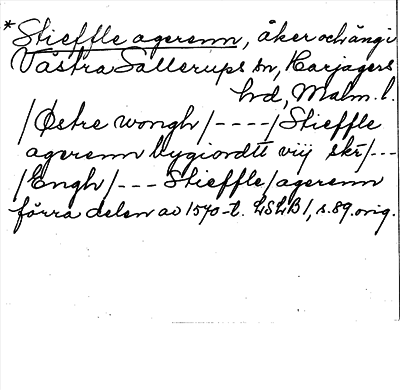 *Stieffle agerenn, åker och äng i
Västra Sallerups sn, Harjagers
hd, Malm. l.
/Østre wongh/----/Stieffle
agerenn bygiordtt viij skr/---
/Engh/--- Stieffle/agerenn
förra delen av 1570-t. LSLB 1, s. 89. orig.